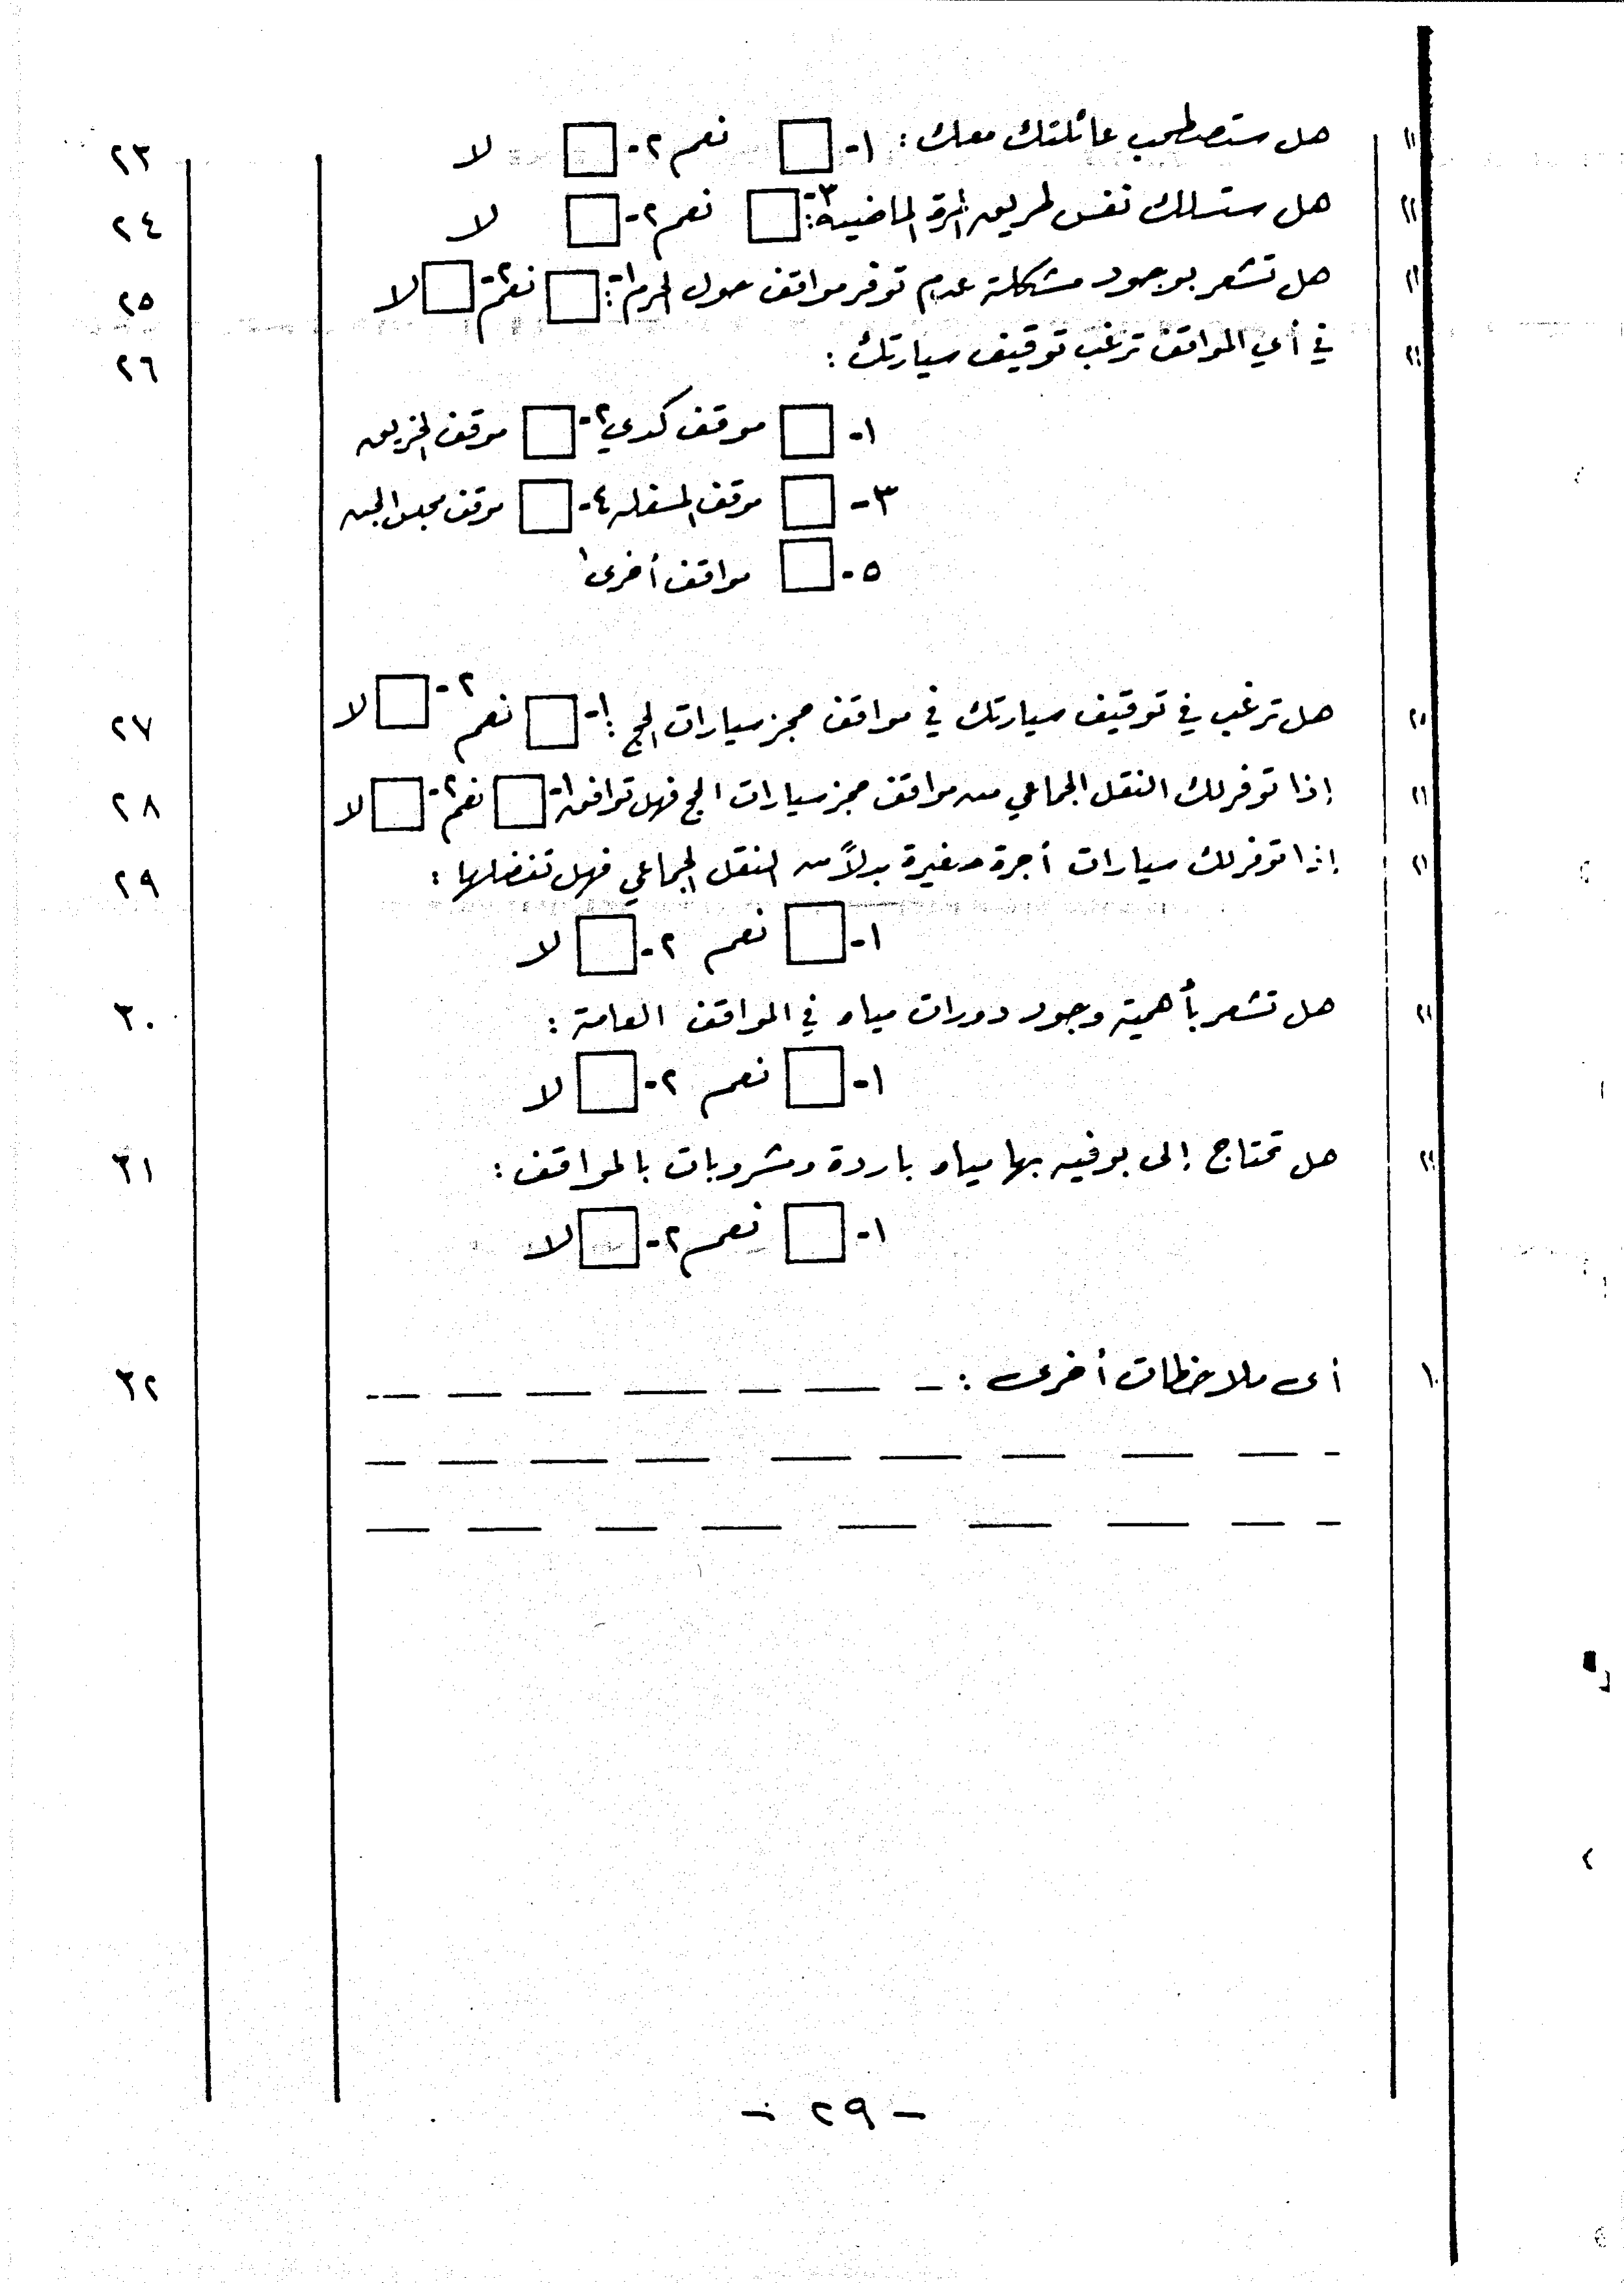 هل ستصطحب عائلتك معك : ١- نعم ٢- لا ٢٣
هل ستسلك نفس طريق المرة الماضية : نعم ٢- لا ٢٤
هل تشعر بوجود مشكلة عدم توفر مواقف حول الحرم : ١- نعم ٢- لا ٢٥
في أي المواقف ترغب توقيف سيارتك : ٢٦
١- موقف كدي ٢- موقف الخريق
٣- موقف المسفله ٤- موقف محبس الجن
٥- مواقف أخرى
هل ترغب في توقيف سيارتك في مواقف حجز سيارات الحج : ١- نعم ٢- لا ٢٧
إذا توفر لك النقل الجماعي من مواقف حجز سيارات الحج فهل توافق ١- نعم ٢- لا ٢٨
إذا توفر لك سيارات أجرة صغيرة بدلاً من النقل الجماعي فهل تفضلها : ٢٩
١- نعم ٢- لا
هل تشعر بأهمية وجود دورات مياه في المواقف العامة : ٣٠
١- نعم ٢- لا
هل تحتاج إلى بوفيه بها مياه باردة ومشروبات بالمواقف : ٣١
١- نعم ٢- لا
أى ملاحظات أخرى : ٣٢
- ٢٩ -